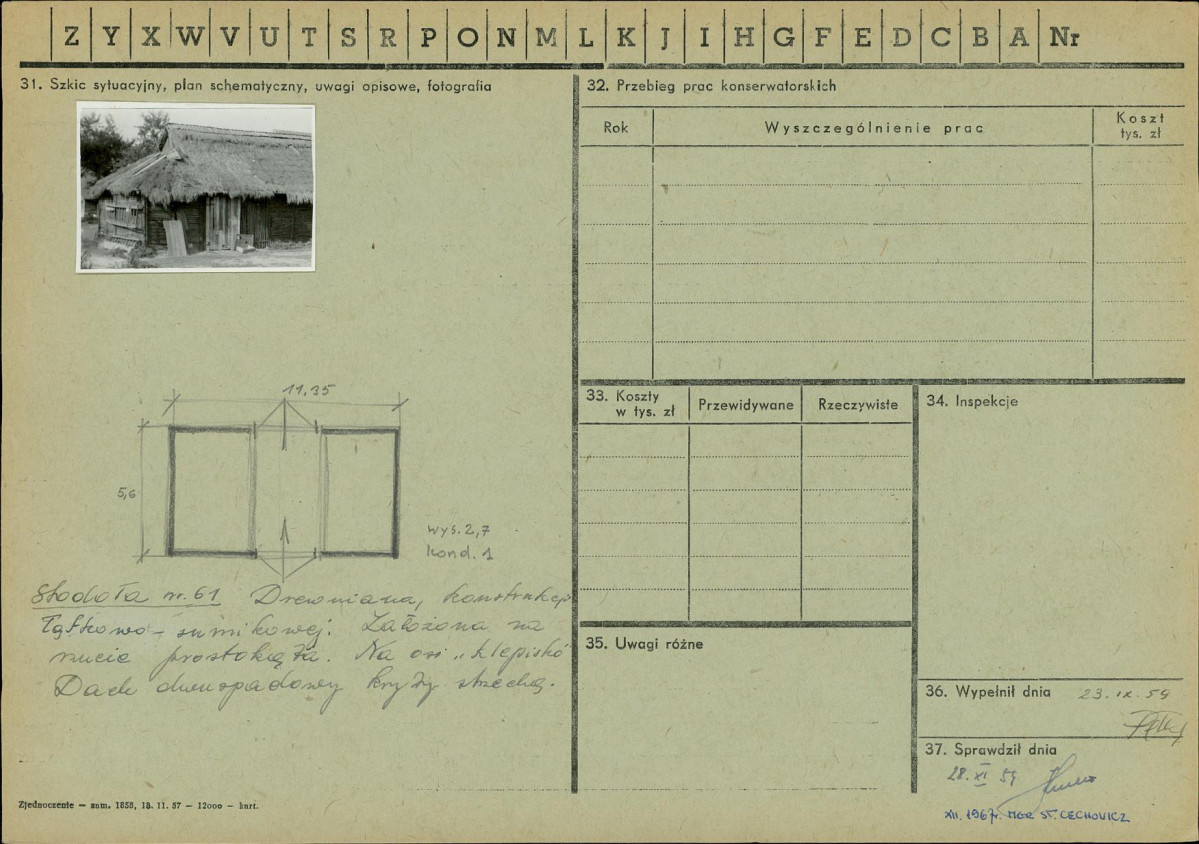 Z Y X W V U T S R P O N M L K J I H G F E D C B A Nr
31. Szkic sytuacyjny, plan schematyczny, uwagi opisowe, fotografia
11,35
5,6
wys. 2,7
kond. 1
Stodoła nr. 61 Drewniana, konstrukcji
łątkowo-sumikowej. Założona na
rzucie prostokąta. Na osi „klepisko"
Dach dwuspadowy kryty strzechą.
Zjednoczenie — zam. 1858, 18. 11. 57 — 12000 — kart.
32. Przebieg prac konserwatorskich
Rok
Wyszczególnienie prac
Koszt
tys. zł
33. Koszty
w tys. zł
Przewidywane
Rzeczywiste
34. Inspekcje
35. Uwagi różne
36. Wypełnił dnia 23. IX. 59
37. Sprawdził dnia
28. XI 59
XII. 1967r. MGR ST. CECHOWICZ